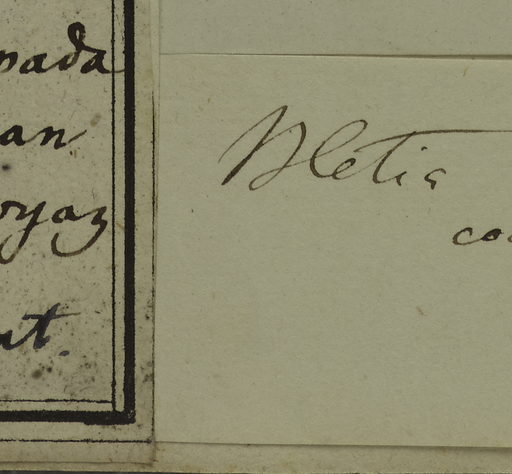 pada
an
oyaz
nt.
Bletia
co